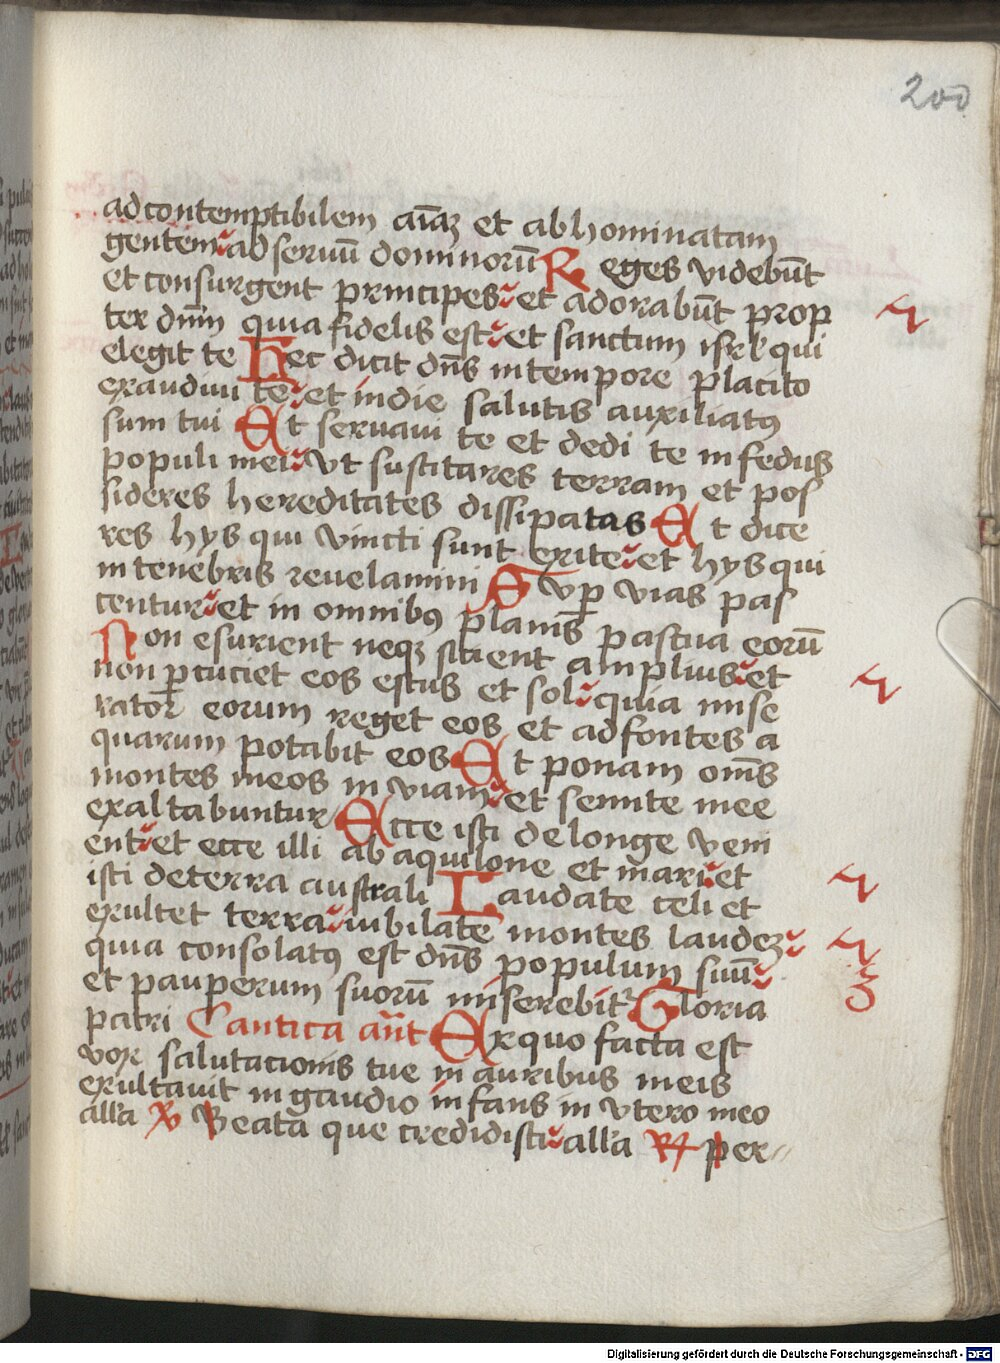 200
ad contemptibilem aīaꝫ et abhominatam
gentem ad seruū dominorū Reges videbūt
et consurgent principes et adorabūt prop
ter dn̄m quia fidelis est et sanctum isrl̄ qui
elegit te Hec dicit dn̄s in tempore placito
exaudiui te et in die salutis auxiliatꝯ
sum tui Et seruaui te et dedi te in fedus
populi mei vt suscitares terram et pos
sideres hereditates dissipatas Et dice
res hys qui vincti sunt exite et hys qui
in tenebris reuelamini Suꝑ vias pas
centur et in omnibꝯ planis pascua eorū
Non esurient neqꝫ sitient amplius et
non ꝑcuciet eos estus et sol quia mise
rator eorum reget eos et ad fontes a
quarum potabit eos Et ponam om̄s
montes meos in viam et semite mee
exaltabuntur Ecce isti de longe veni
ent et ecce illi ab aquilone et mari et
isti de terra australi Laudate celi et
exultet terra iubilate montes laudeꝫ
quia consolatꝯ est dn̄s populum suū
et pauperum suorū miserebit᷑ Gloria
patri Cantica an̄t Ex quo facta est
vox salutacionis tue in auribus meis
exultauit in gaudio infans in vtero meo
all̄a ℣ Beata que credidisti all̄a ℞ per
Digitalisierung gefördert durch die Deutsche Forschungsgemeinschaft - DFG